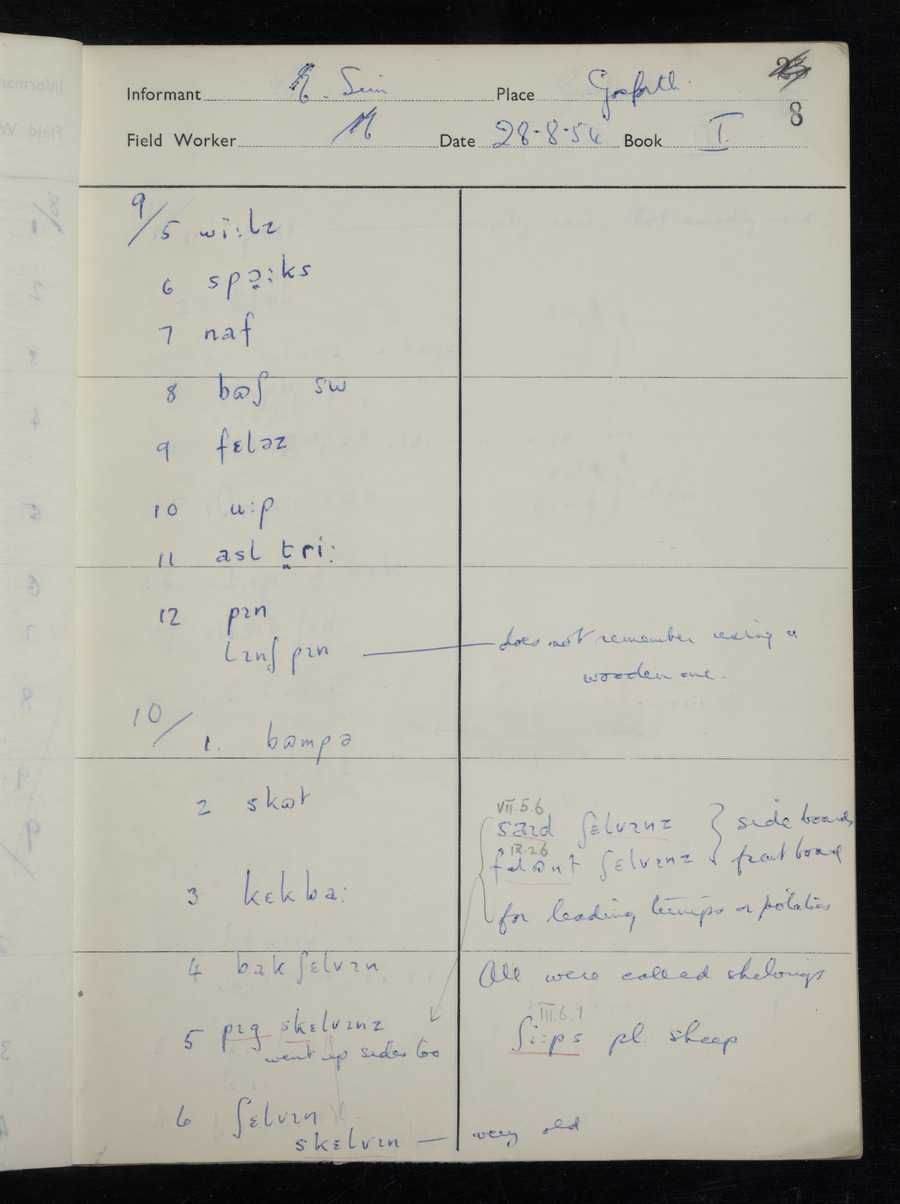 Informant Place Gosforth 8
Field Worker Date 28-8-54 Book I.
9/5 wi:lz
6 spɔ̣:ks
7 naf
8 bɷʃ sw
9 fɛləz
10 u:p
11 asl t̪ri:
12 pɪn
lɪnʃ pɪn — does not remember using a
wooden one.
10/1. bɷmpə
2 skɷt
VII.5.6
saɪd ʃɛlvɪnz } side boards
IX.2.6
fɹɷnt ʃɛlvɪnz } front board
3 kɛkba:
for leading turnips or potatoes
4 bak ʃɛlvɪn All were called shelvings
III.6.1
5 pɪg skɛlvɪnz ʃi:ps pl. sheep
went up sides too
6 ʃɛlvɪn
skɛlvɪn — very old